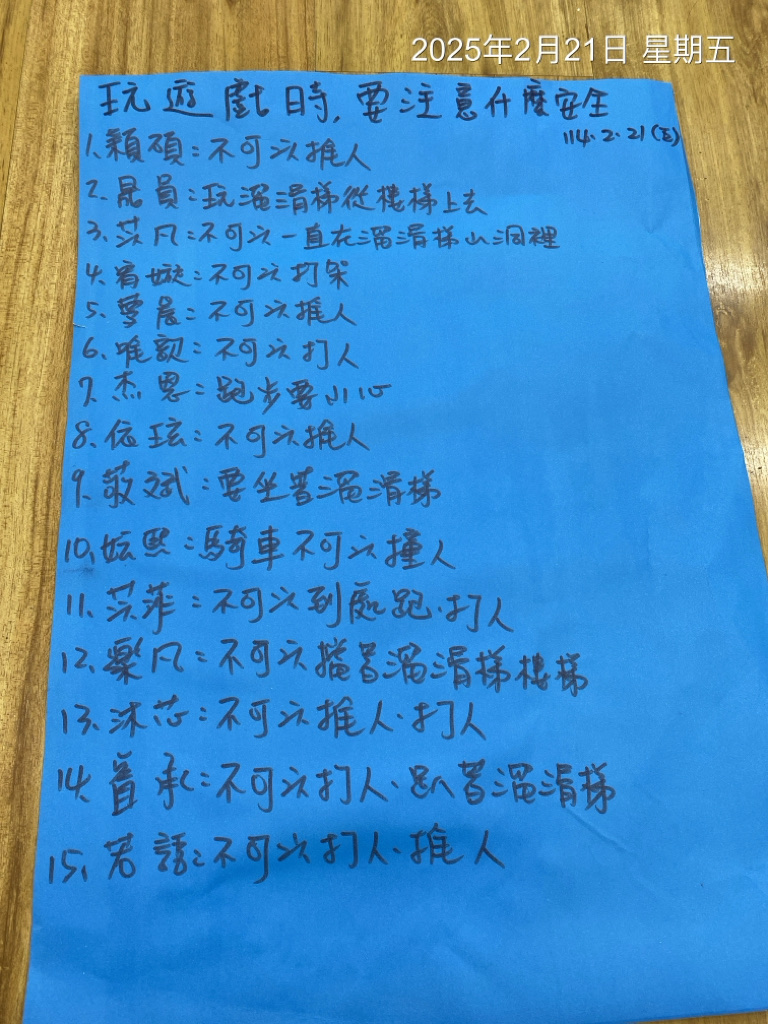 2025年2月21日 星期五
玩遊戲時,要注意什麼安全
114.2.21(五)
1.穎碩:不可以推人
2.晟員:玩溜滑梯從樓梯上去
3.苡凡:不可以一直在溜滑梯山洞裡
4.宥嫙:不可以打架
5.夢晨:不可以推人
6.唯記:不可以打人
7.杰恩:跑步要小心
8.依玹:不可以推人
9.敬斌:要坐著溜滑梯
10.妘熙:騎車不可以撞人
11.苡菲:不可以到處跑.打人
12.樂凡:不可以擋著溜滑梯樓梯
13.沐芯:不可以推人.打人
14.承:不可以打人.趴著溜滑梯
15.若語:不可以打人.推人